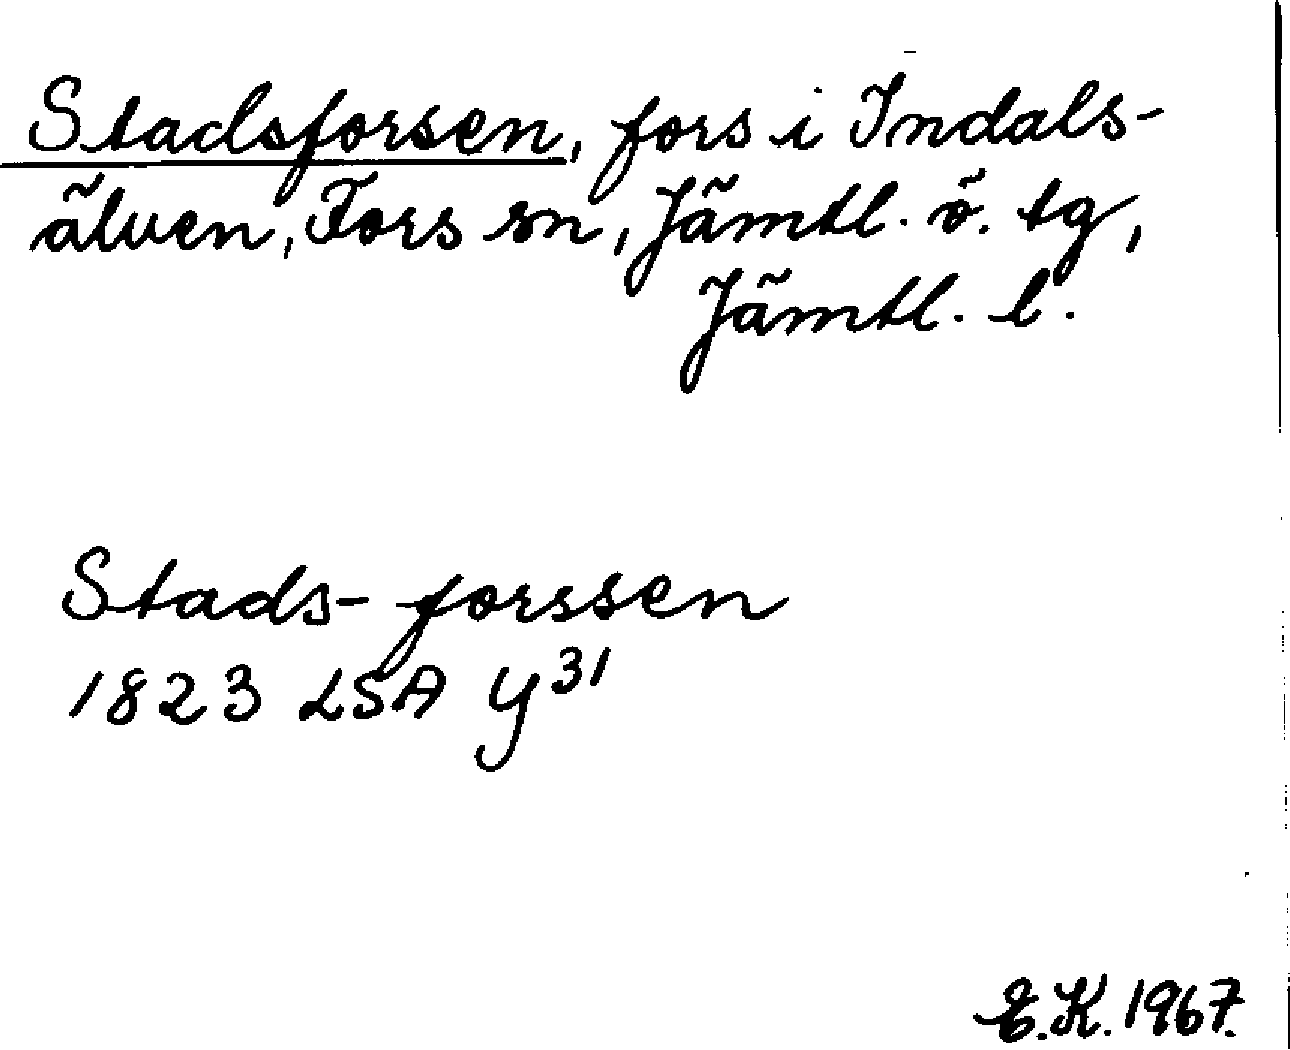 Stadsforsen, fors i Indals-
älven, Fors sn, Jämtl. ö. tg,
Jämtl. l.
Stads-forssen
1823 LSA Y³¹
E.K. 1967.